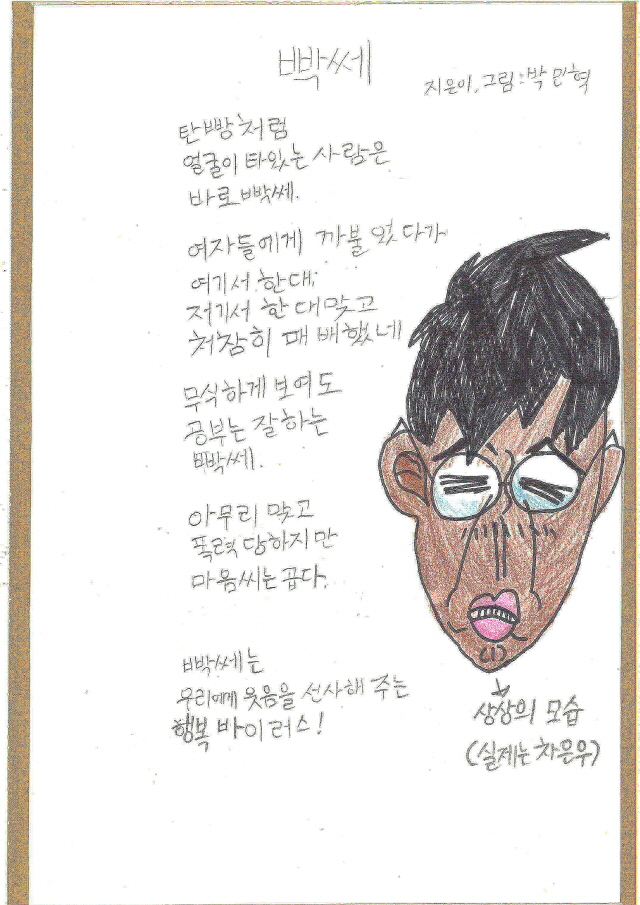 빡쎄
지은이, 그림 : 박민혁
탄빵처럼
얼굴이 타있는 사람은
바로 빡쎄.
여자들에게 까불었다가
여기서 한대,
저기서 한대맞고
처참히 패배했네
무식하게 보여도
공부는 잘하는
빡쎄.
아무리 맞고
폭력 당하지만
마음씨는 곱다.
빡쎄는
우리에게 웃음을 선사해 주는
행복 바이러스!
상상의 모습
(실제는 차은우)